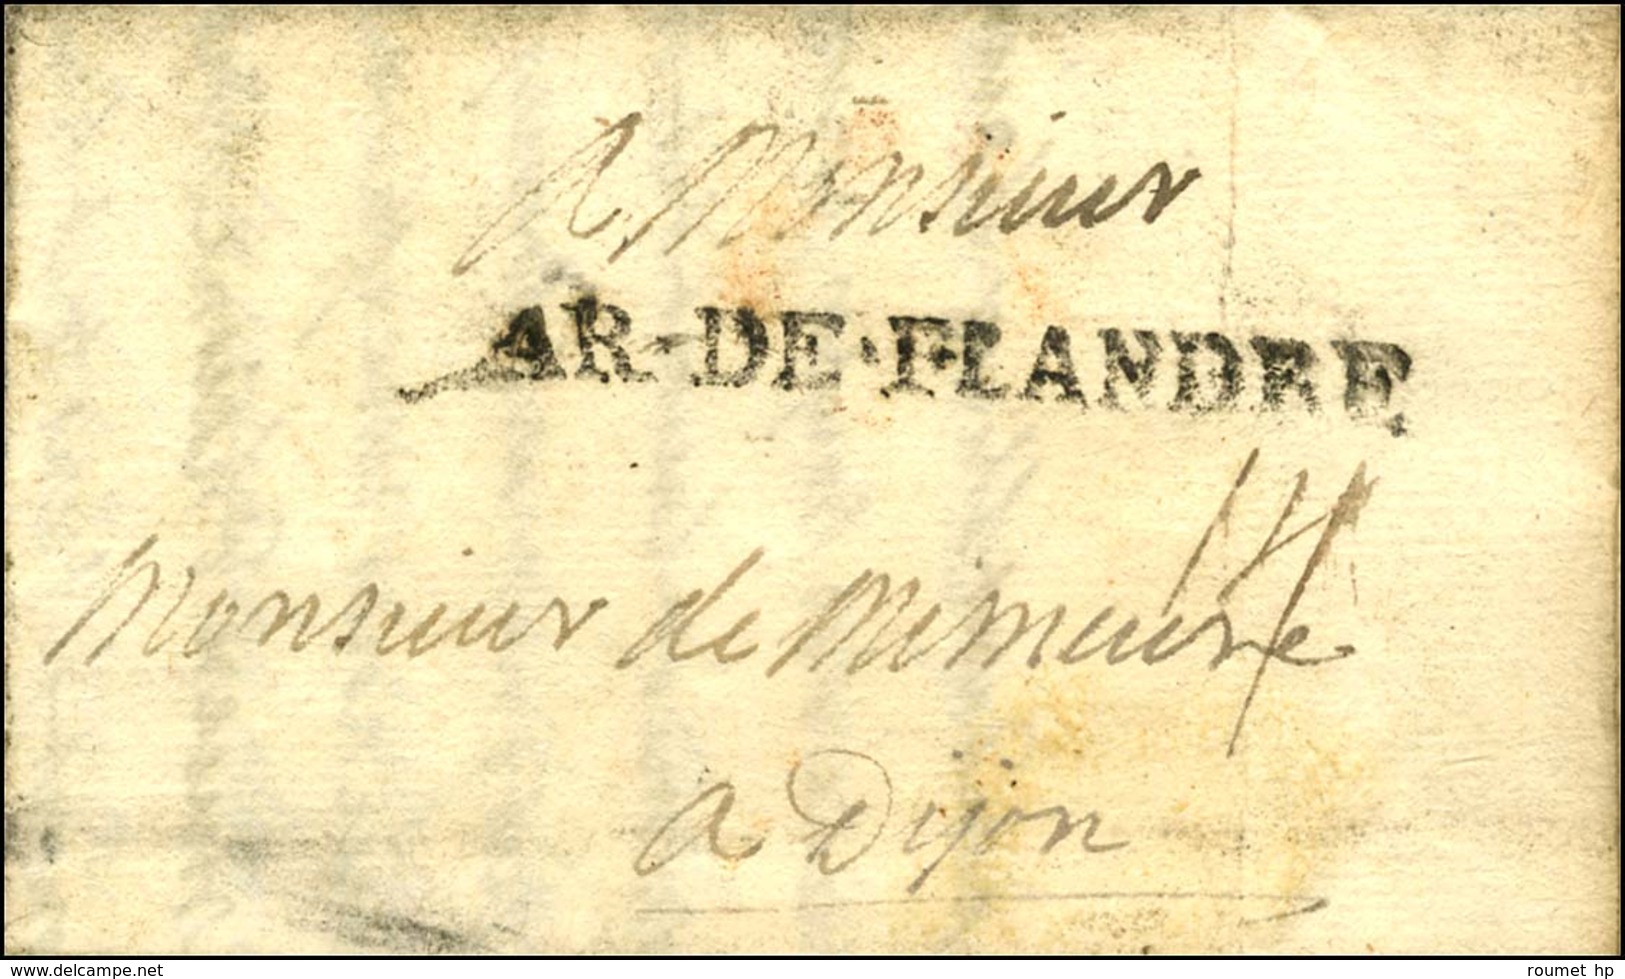 A Monsieur
AR·DE·FLANDRE
Monsieur de Mimeure
a Dijon
www.delcampe.net
roumet hp